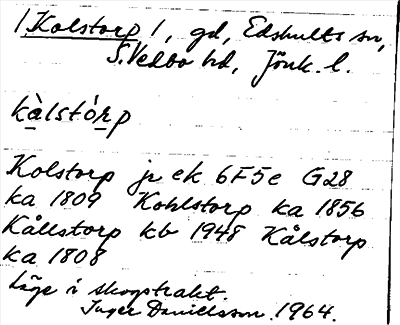 1 Kolstorp 1, gd, Edshults sn,
S. Vedbo hd, Jönk. l.
kàlstórp
Kolstorp jr ek 6F5e G28
ka 1809 Kohlstorp ka 1856
Kållstorp kb 1948 Kålstorp
ka 1808
Läge i skogstrakt.
Inger Danielsson 1964.